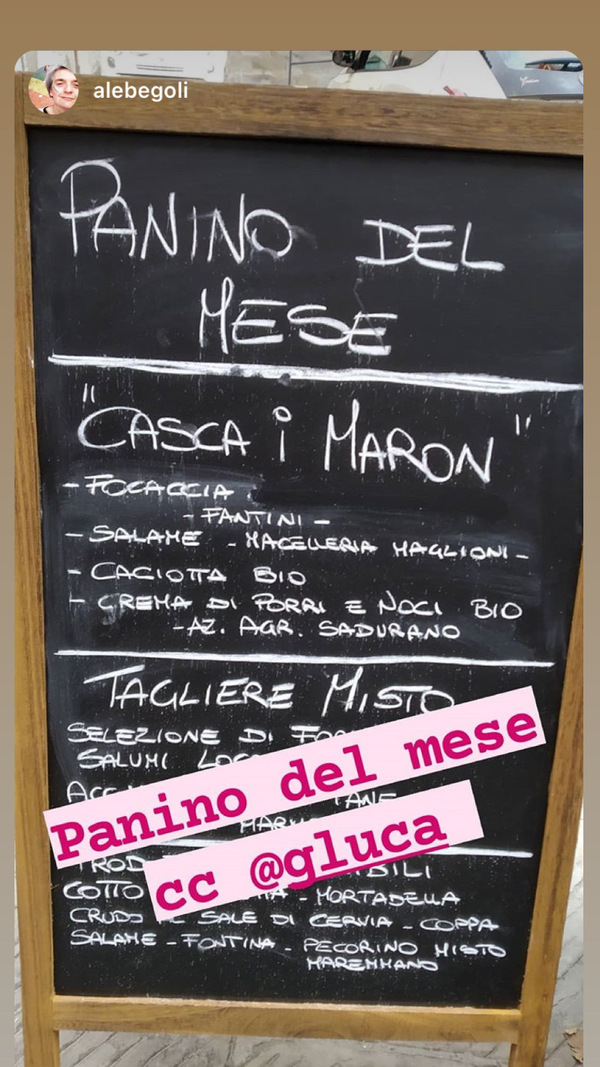 alebegoli
PANINO DEL
MESE
"CASCA i MARON"
- FOCACCIA
- FANTINI -
- SALAME - MACELLERIA MAGLIONI -
- CACIOTTA BIO
- CREMA DI PORRI E NOCI BIO
- AZ. AGR. SADURANO
TAGLIERE MISTO
SELEZIONE DI
SALUMI
Panino del mese
cc @gluca
COTTO - MORTADELLA
CRUDO SALE DI CERVIA - COPPA
SALAME - FONTINA - PECORINO MISTO
MAREMMANO